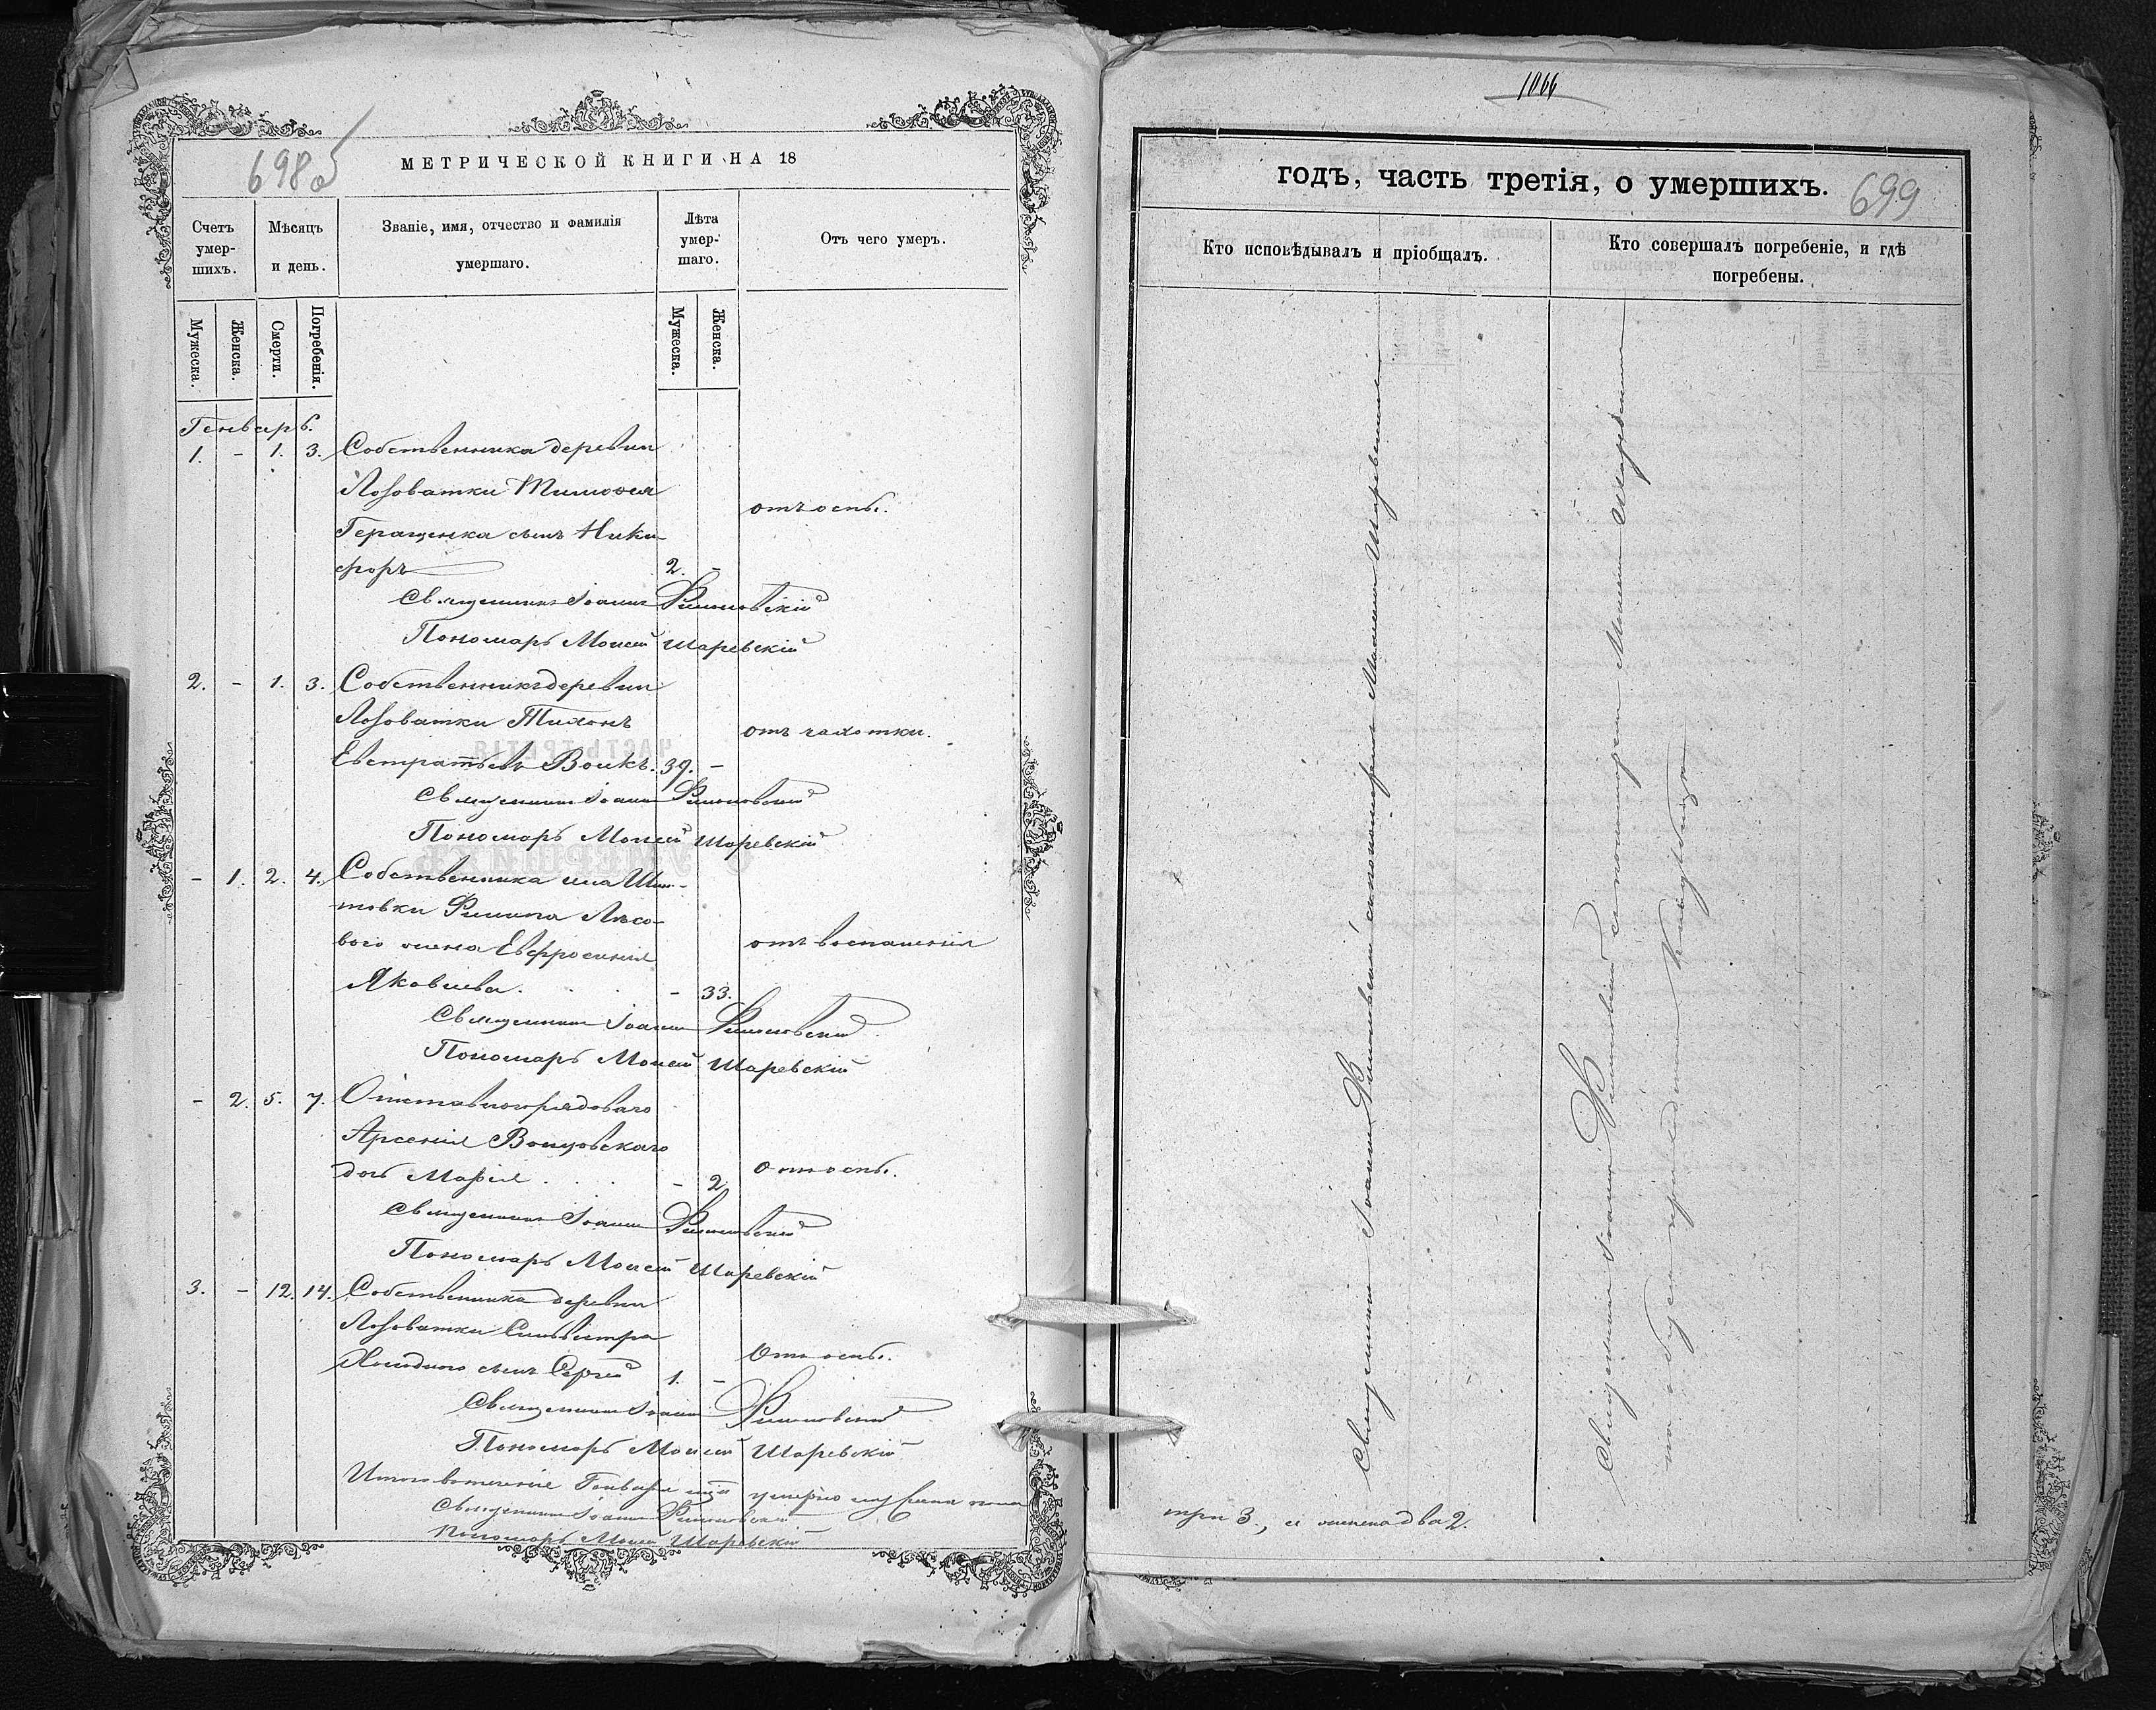 698 об
МЕТРИЧЕСКОЙ КНИГИ НА 18
Счетъ умер-шихъ.
Мѣсяцъ и день.
Званіе, имя, отчество и фамилія умершаго.
Лѣта умер-шаго.
Отъ чего умеръ.
Мужеска.
Женска.
Смерти.
Погребенія.
Мужеска.
Женска.
Генварь.
1. - 1. 3. Собственника деревни
Лозоватки Тимофея
отъ оспы.
Геращенка сынъ Ники-
форъ 2. -
Священникъ Іоаннъ
Пономарь Моисей Шаревскій
2. - 1. 3. Собственникъ деревни
Лозоватки Тихонъ
отъ чахотки.
Евстратьевъ Вовкъ. 39. -
Священникъ Іоаннъ
Пономарь Моисей Шаревскій
- 1. 2. 4. Собственника села
Филипа Лѣсо-
вого жена Евфросинія
отъ воспаленія
Яковлева. - 33.
Священникъ Іоаннъ
Пономарь Моисей Шаревскій
- 2. 5. 7. Отставного рядового
Арсенія
дочь Марія - 2
отъ оспы.
Священникъ Іоаннъ
Пономарь Моисей Шаревскій
3. - 12. 14. Собственника деревни
Лозоватки Сильвестра
Отъ оспы.
Холодного сынъ Сергій 1. -
Священникъ Іоаннъ
Пономарь Моисей Шаревскій
Итого въ теченіе Генваря м-ца умерло мужеска пола
Священникъ Іоаннъ
Пономарь Моисей Шаревскій
1066
годъ, часть третія, о умершихъ.
699
Кто исповѣдывалъ и пріобщалъ.
Кто совершалъ погребеніе, и гдѣ погребены.
Священникъ Іоаннъ съ пономаремъ Моисеемъ Шаревскимъ
Священникъ Іоаннъ съ пономаремъ Моисеемъ Шаревскимъ
на обще приходскомъ кладбищѣ
три 3., а женска два 2.